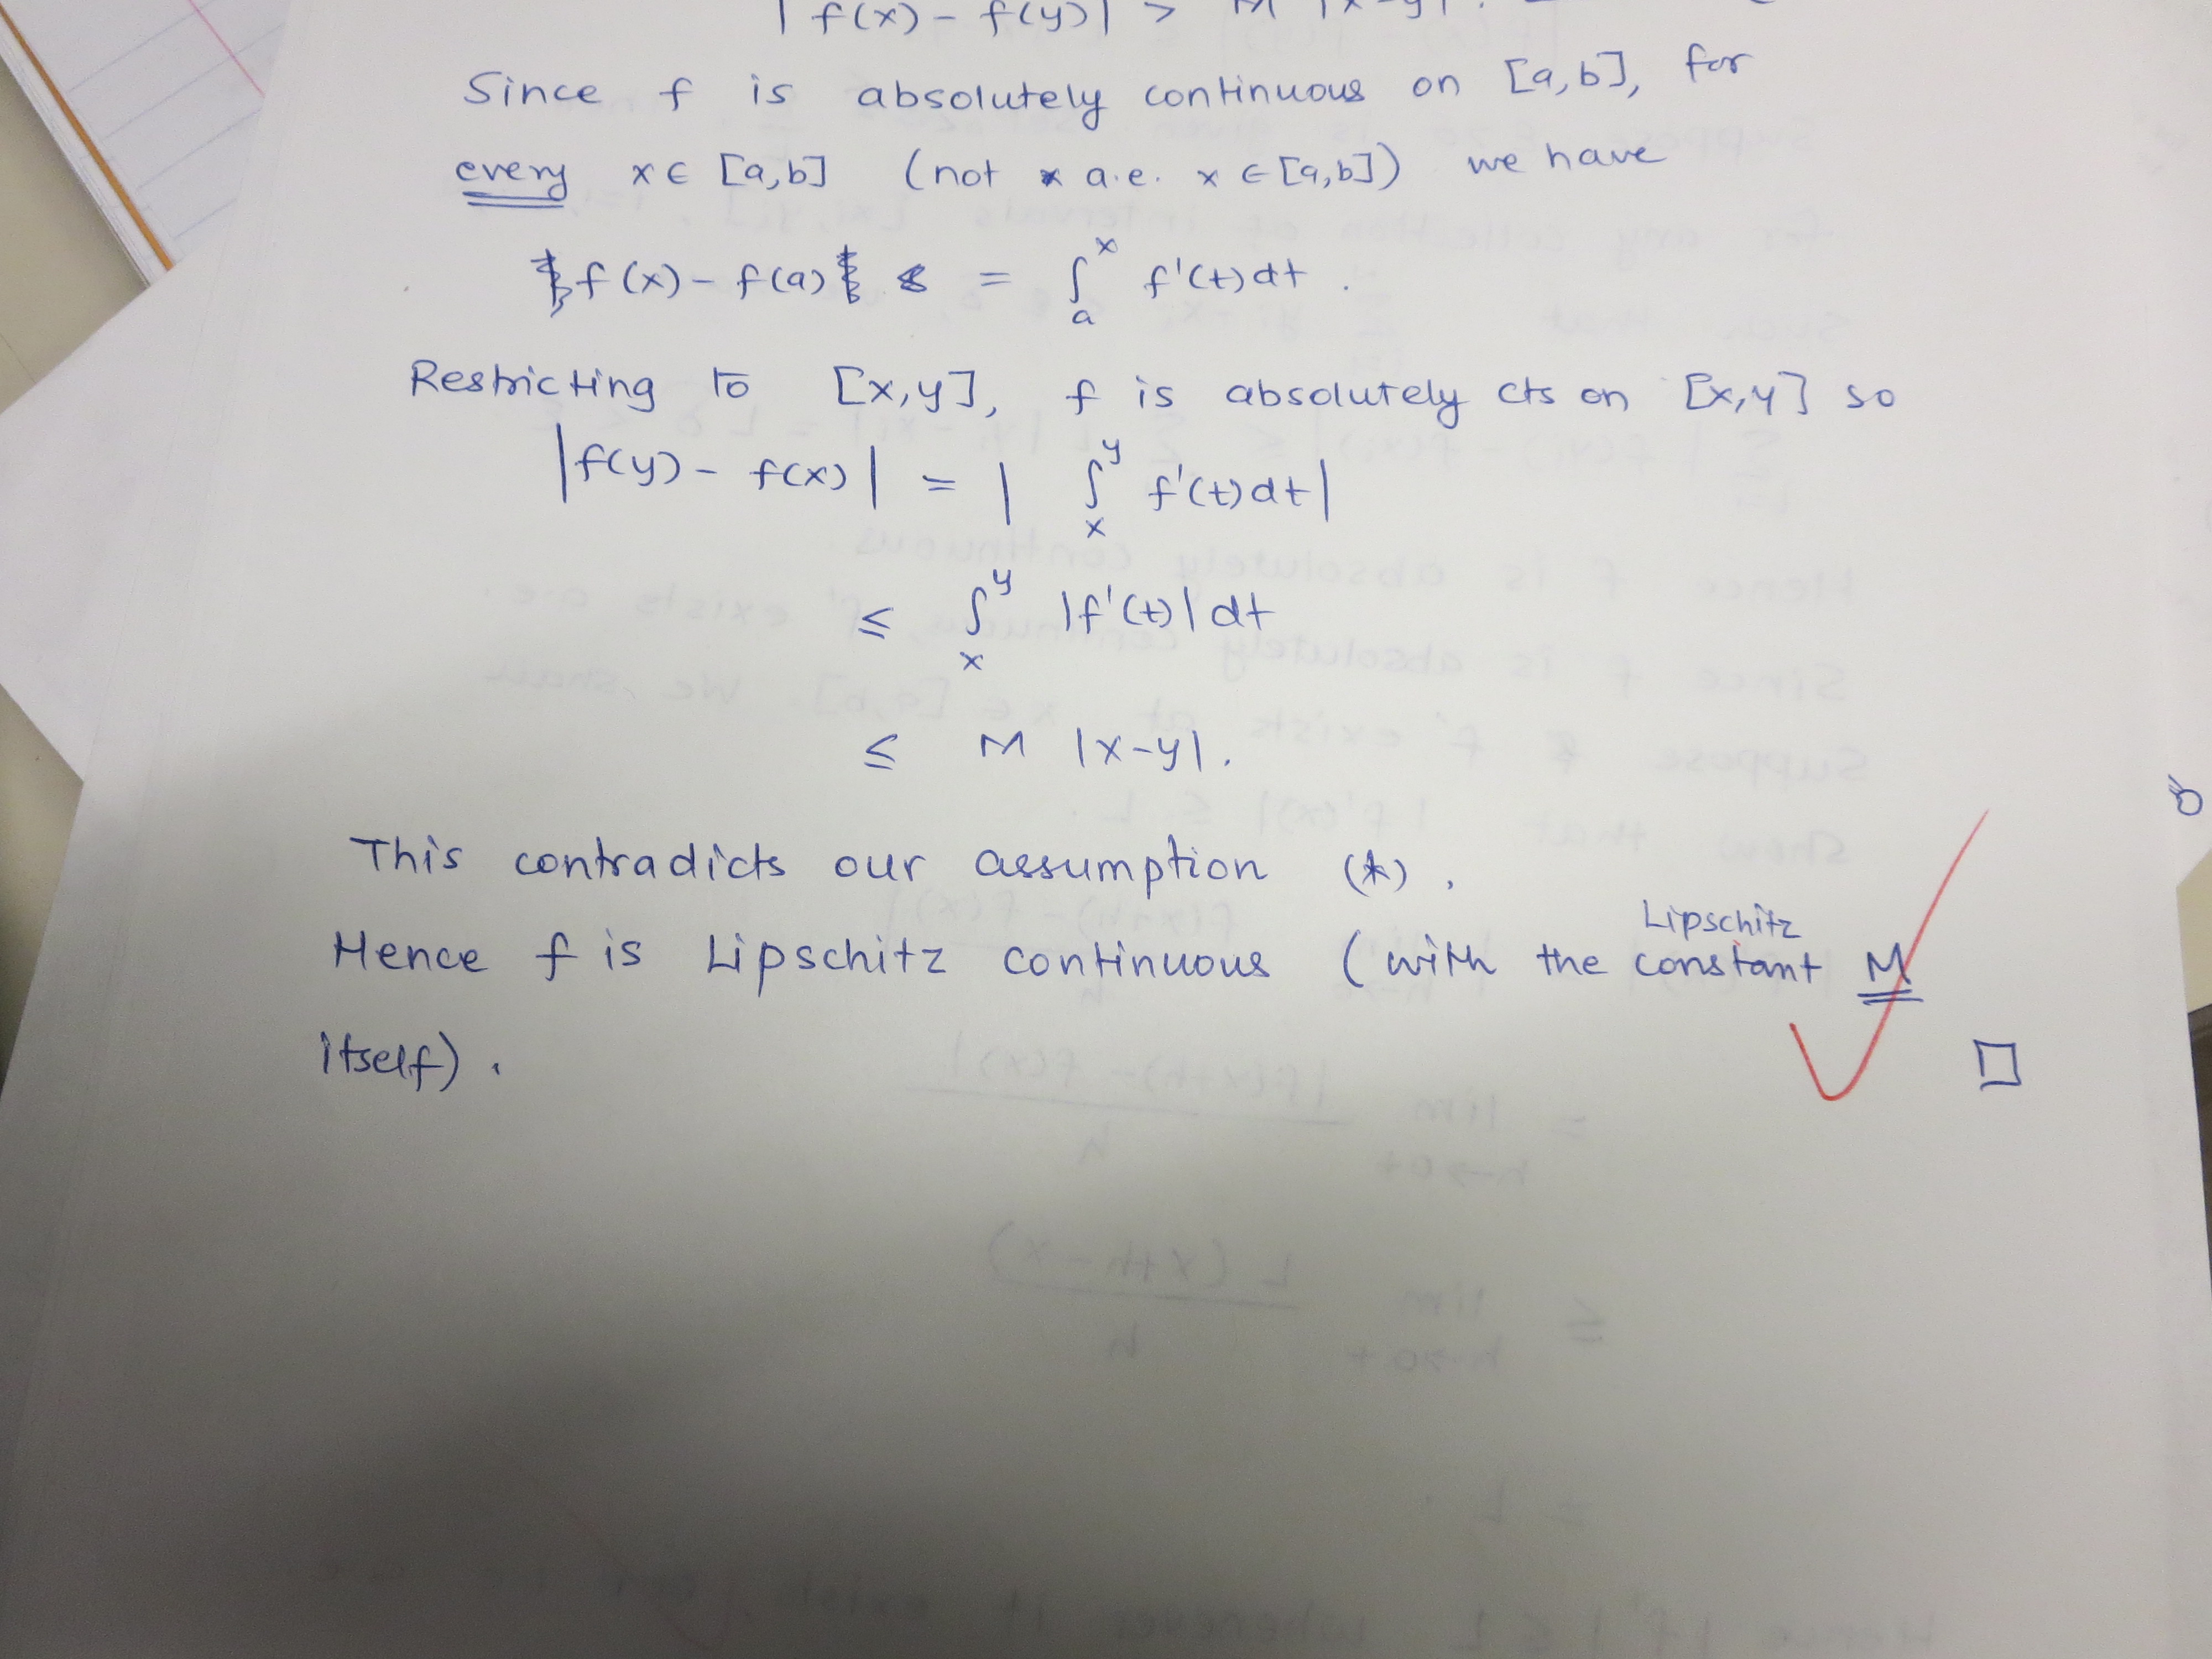 |f(x) - f(y)| > M |x-y|.
Since f is absolutely continuous on [a,b], for
every x ∈ [a,b] (not a.e. x ∈ [a,b]) we have
f(x) - f(a) = ∫_a^x f'(t)dt.
Restricting to [x,y], f is absolutely cts on [x,y] so
|f(y) - f(x)| = |∫_x^y f'(t)dt|
≤ ∫_x^y |f'(t)|dt
≤ M |x-y|.
This contradicts our assumption (*).
Lipschitz
Hence f is Lipschitz continuous (with the constant M
itself).
□